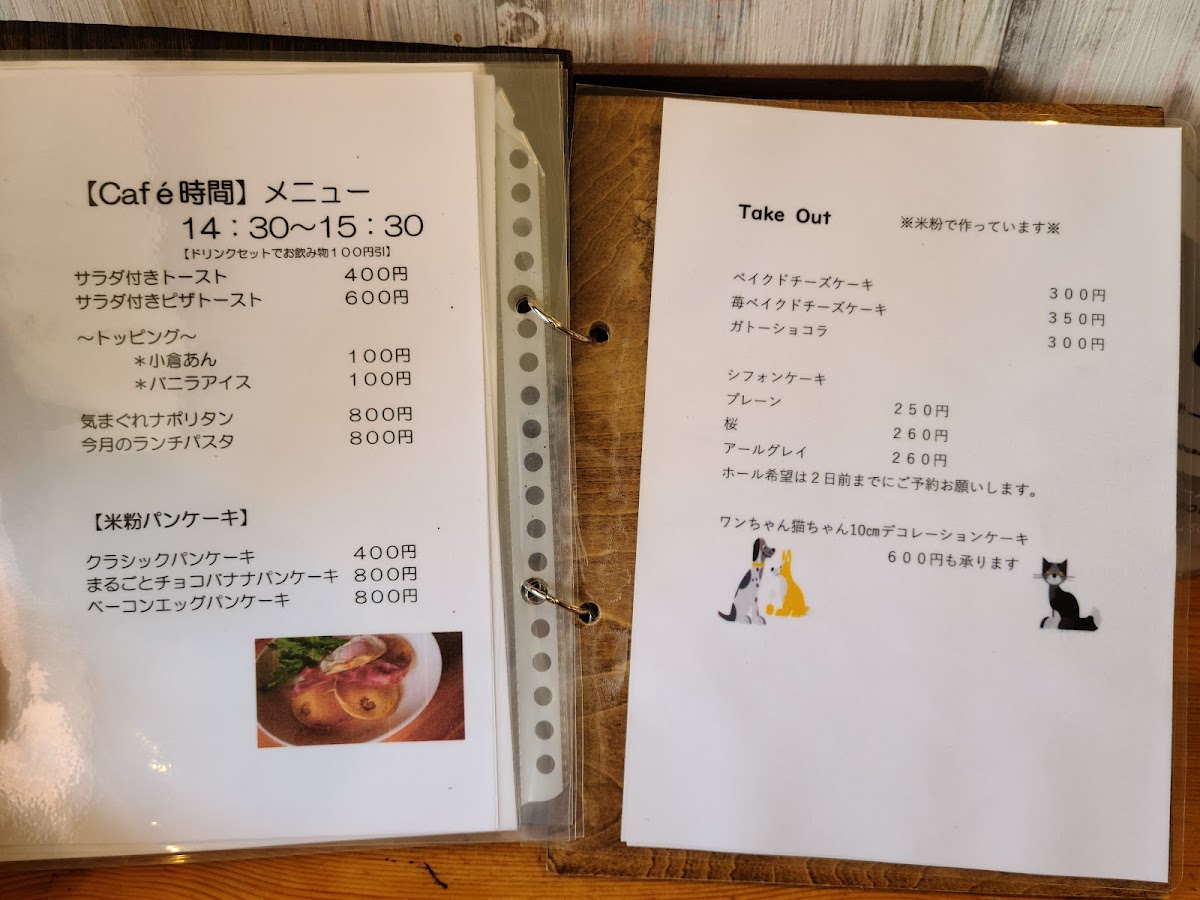 【Café時間】メニュー
14：30～15：30
【ドリンクセットでお飲み物１００円引】
サラダ付きトースト 400円
サラダ付きピザトースト 600円
～トッピング～
＊小倉あん 100円
＊バニラアイス 100円
気まぐれナポリタン 800円
今月のランチパスタ 800円
【米粉パンケーキ】
クラシックパンケーキ 400円
まるごとチョコバナナパンケーキ 800円
ベーコンエッグパンケーキ 800円
Take Out ※米粉で作っています※
ベイクドチーズケーキ ３００円
苺ベイクドチーズケーキ ３５０円
ガトーショコラ ３００円
シフォンケーキ
プレーン ２５０円
桜 ２６０円
アールグレイ ２６０円
ホール希望は２日前までにご予約お願いします。
ワンちゃん猫ちゃん10㎝デコレーションケーキ
６００円も承ります